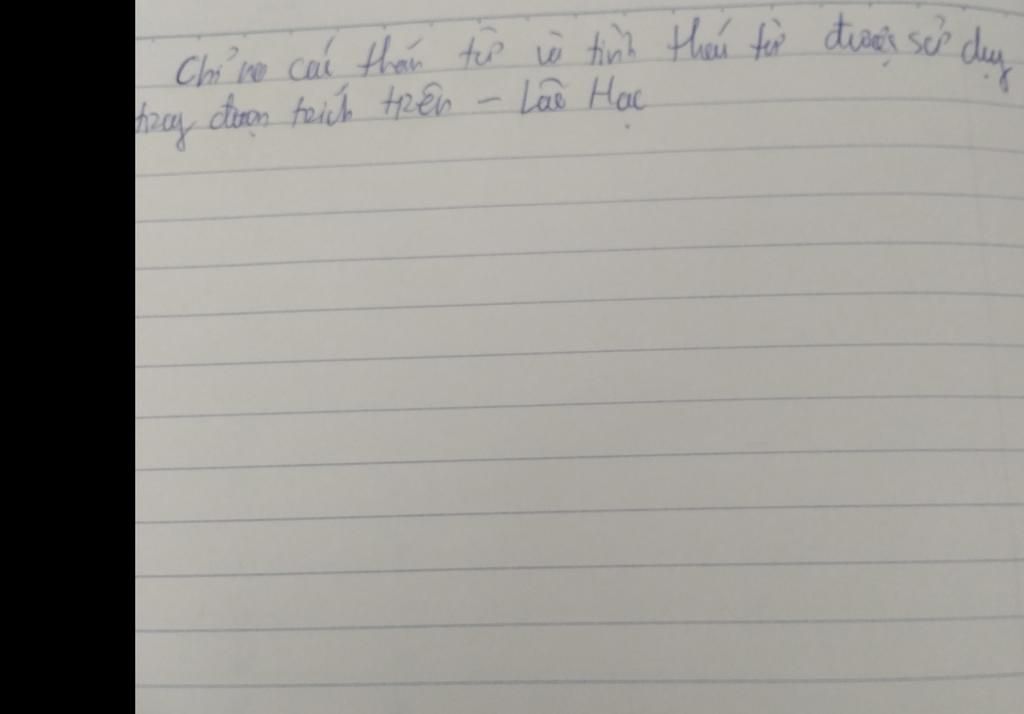 Chỉ ra các thán từ và tình thái từ được sử dụng
trong đoạn trích trên - Lão Hạc